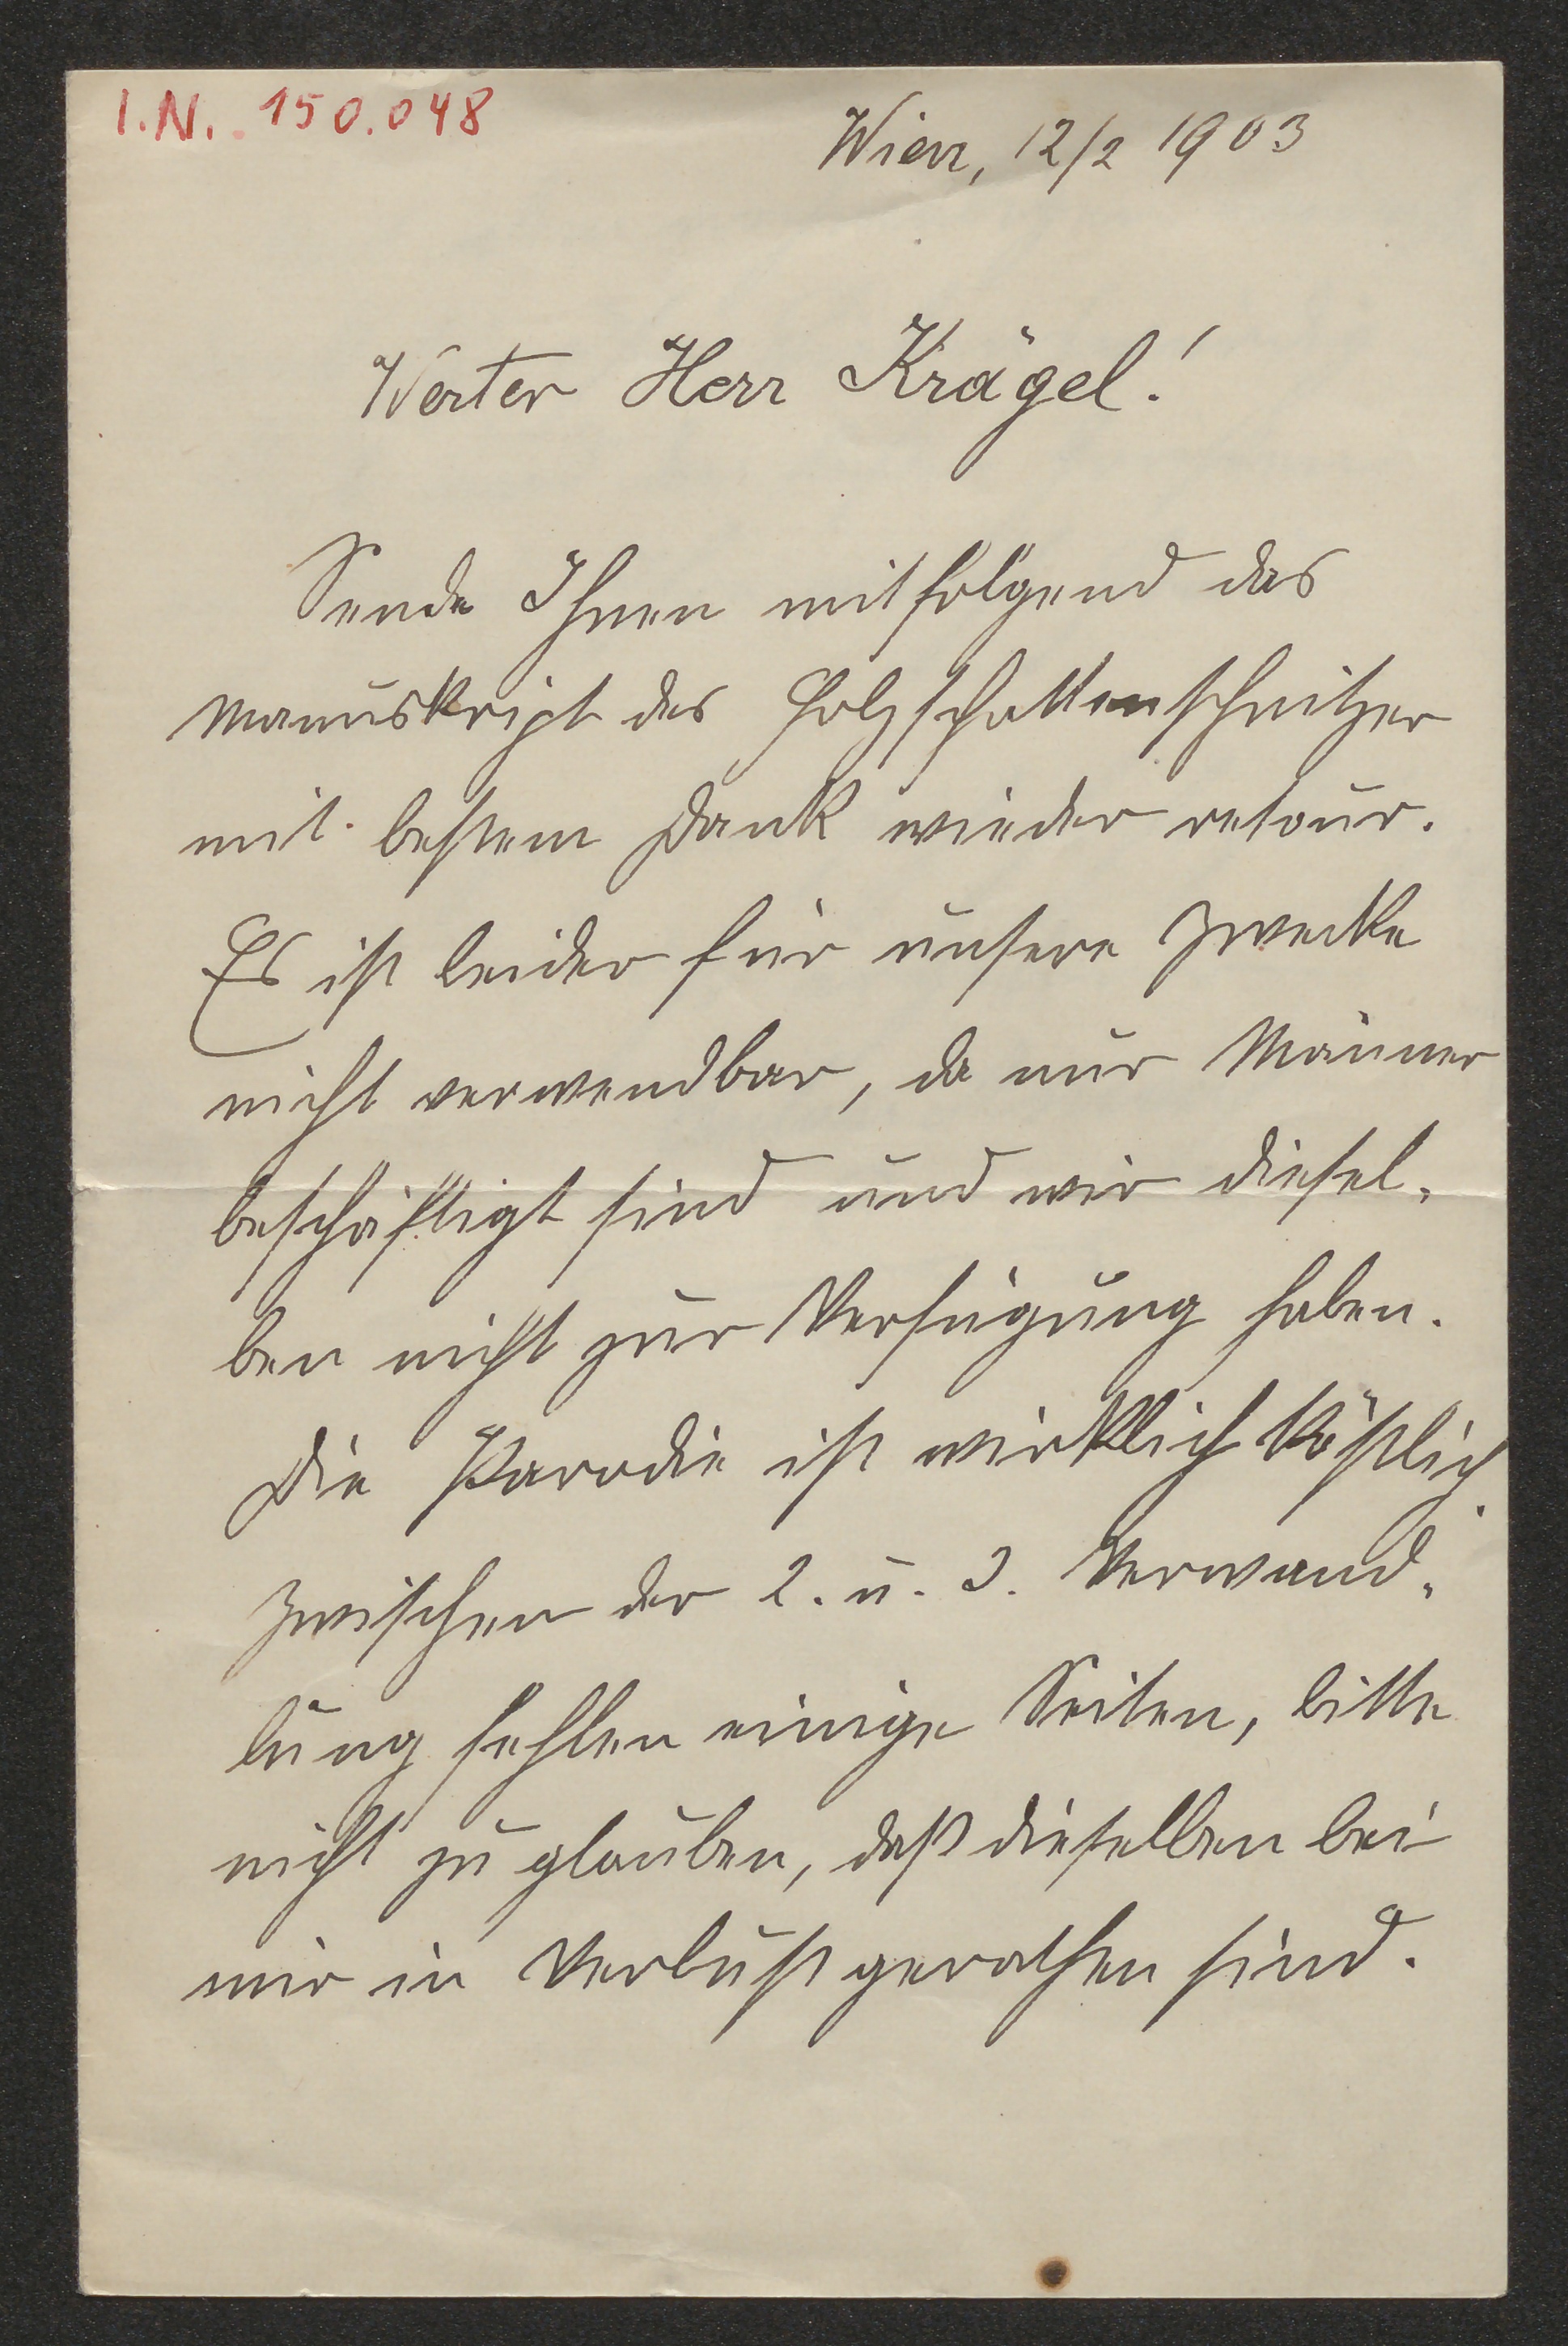 I.N. 150.048
Wien, 12/2 1903
Werter Herr Krägel!
Sende Ihnen mitfolgend das
Manuskript des Holzschattenschnitzer
mit bestem Dank wieder retour.
Es ist leider für unsere Zwecke
nicht verwendbar, da nur Männer
beschäftigt sind und wir diesel-
ben nicht zur Verfügung haben.
Die Parodie ist wirklich köstlich.
Zwischen der 2. u. 3. Verwand-
lung fehlen einige Seiten, bitte
nicht zu glauben, daß dieselben bei
mir in Verlust gerathen sind.